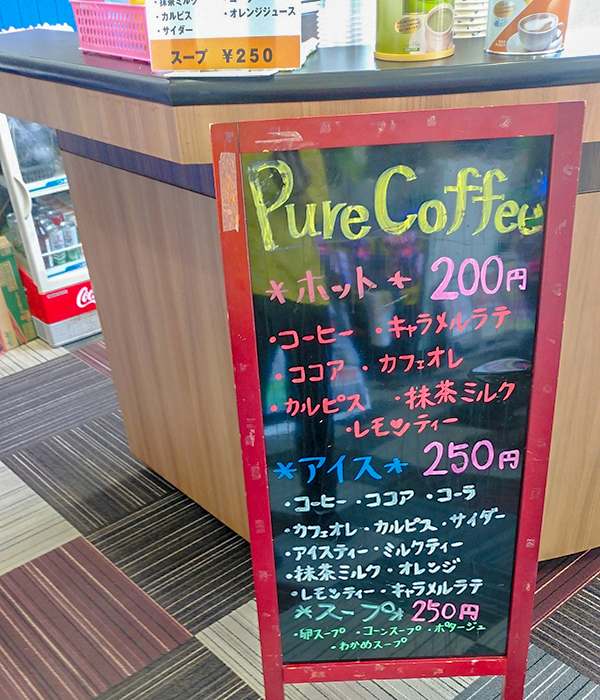 ・抹茶ミルク
・カルピス ・オレンジジュース
・サイダー
スープ ¥250
Coca
Pure Coffee
*ホット* 200円
・コーヒー ・キャラメルラテ
・ココア ・カフェオレ
・カルピス ・抹茶ミルク
・レモンティー
*アイス* 250円
・コーヒー ・ココア ・コーラ
・カフェオレ・カルピス・サイダー
・アイスティー・ミルクティー
・抹茶ミルク・オレンジ
・レモンティー・キャラメルラテ
*スープ* 250円
・卵スープ ・コーンスープ ・ポタージュ
・わかめスープ